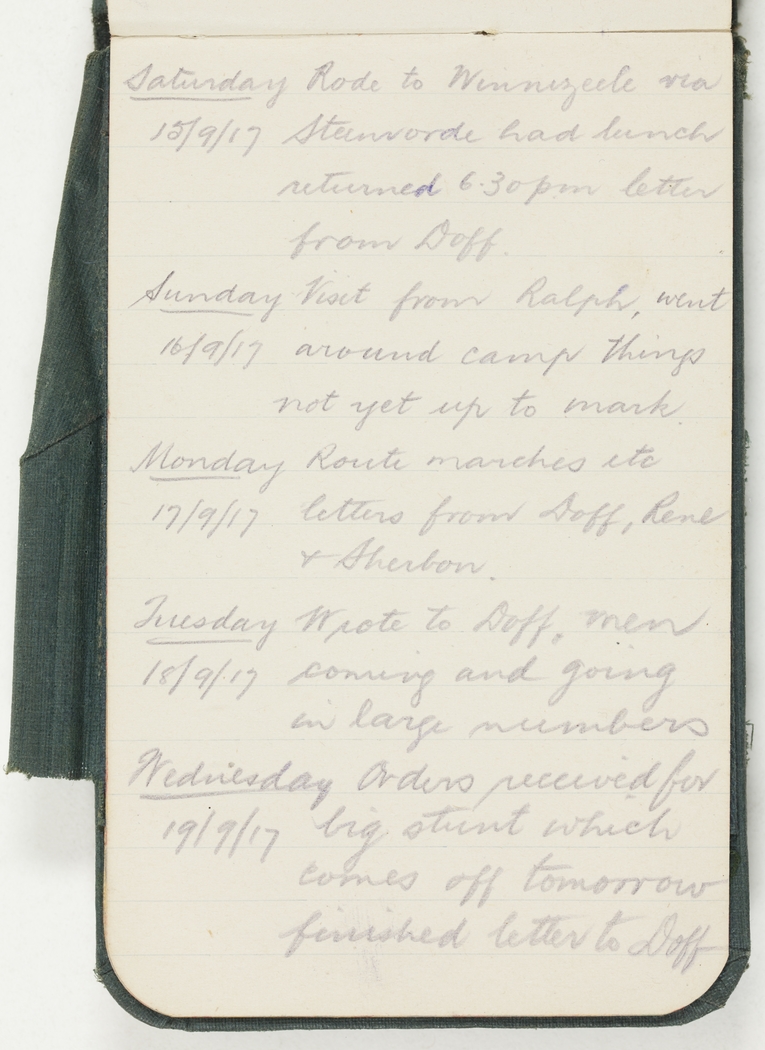 Saturday Rode to Winnizeele via
15/9/17 Steenvorde had lunch
returned 6.30pm letter
from Doff.
Sunday Visit from Ralph, went
16/9/17 around camp things
not yet up to mark
Monday Route marches etc
17/9/17 letters from Doff, Rene
+ Sherbon.
Tuesday Wrote to Doff, men
18/9/17 coming and going
in large numbers
Wednesday Orders received for
19/9/17 big stunt which
comes off tomorrow
finished letter to Doff